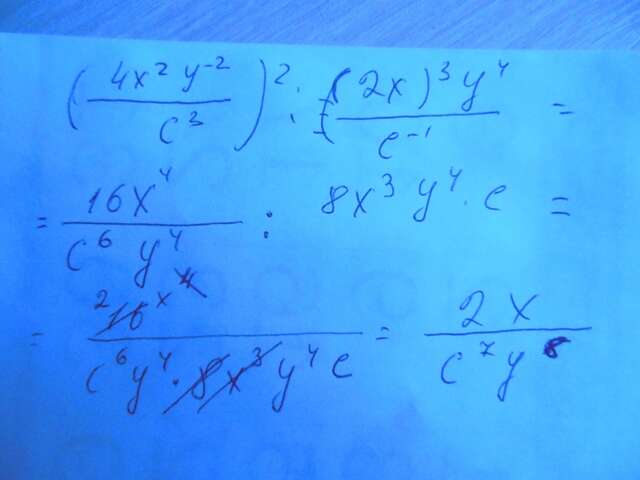 (4x² y⁻² / c³)² : (2x)³ y⁴ / c⁻¹ =
= 16x⁴ / c⁶ y⁴ : 8x³ y⁴ · c =
= ²16x⁴ / c⁶y⁴ · 8x³ y⁴ c = 2x / c⁷y⁸